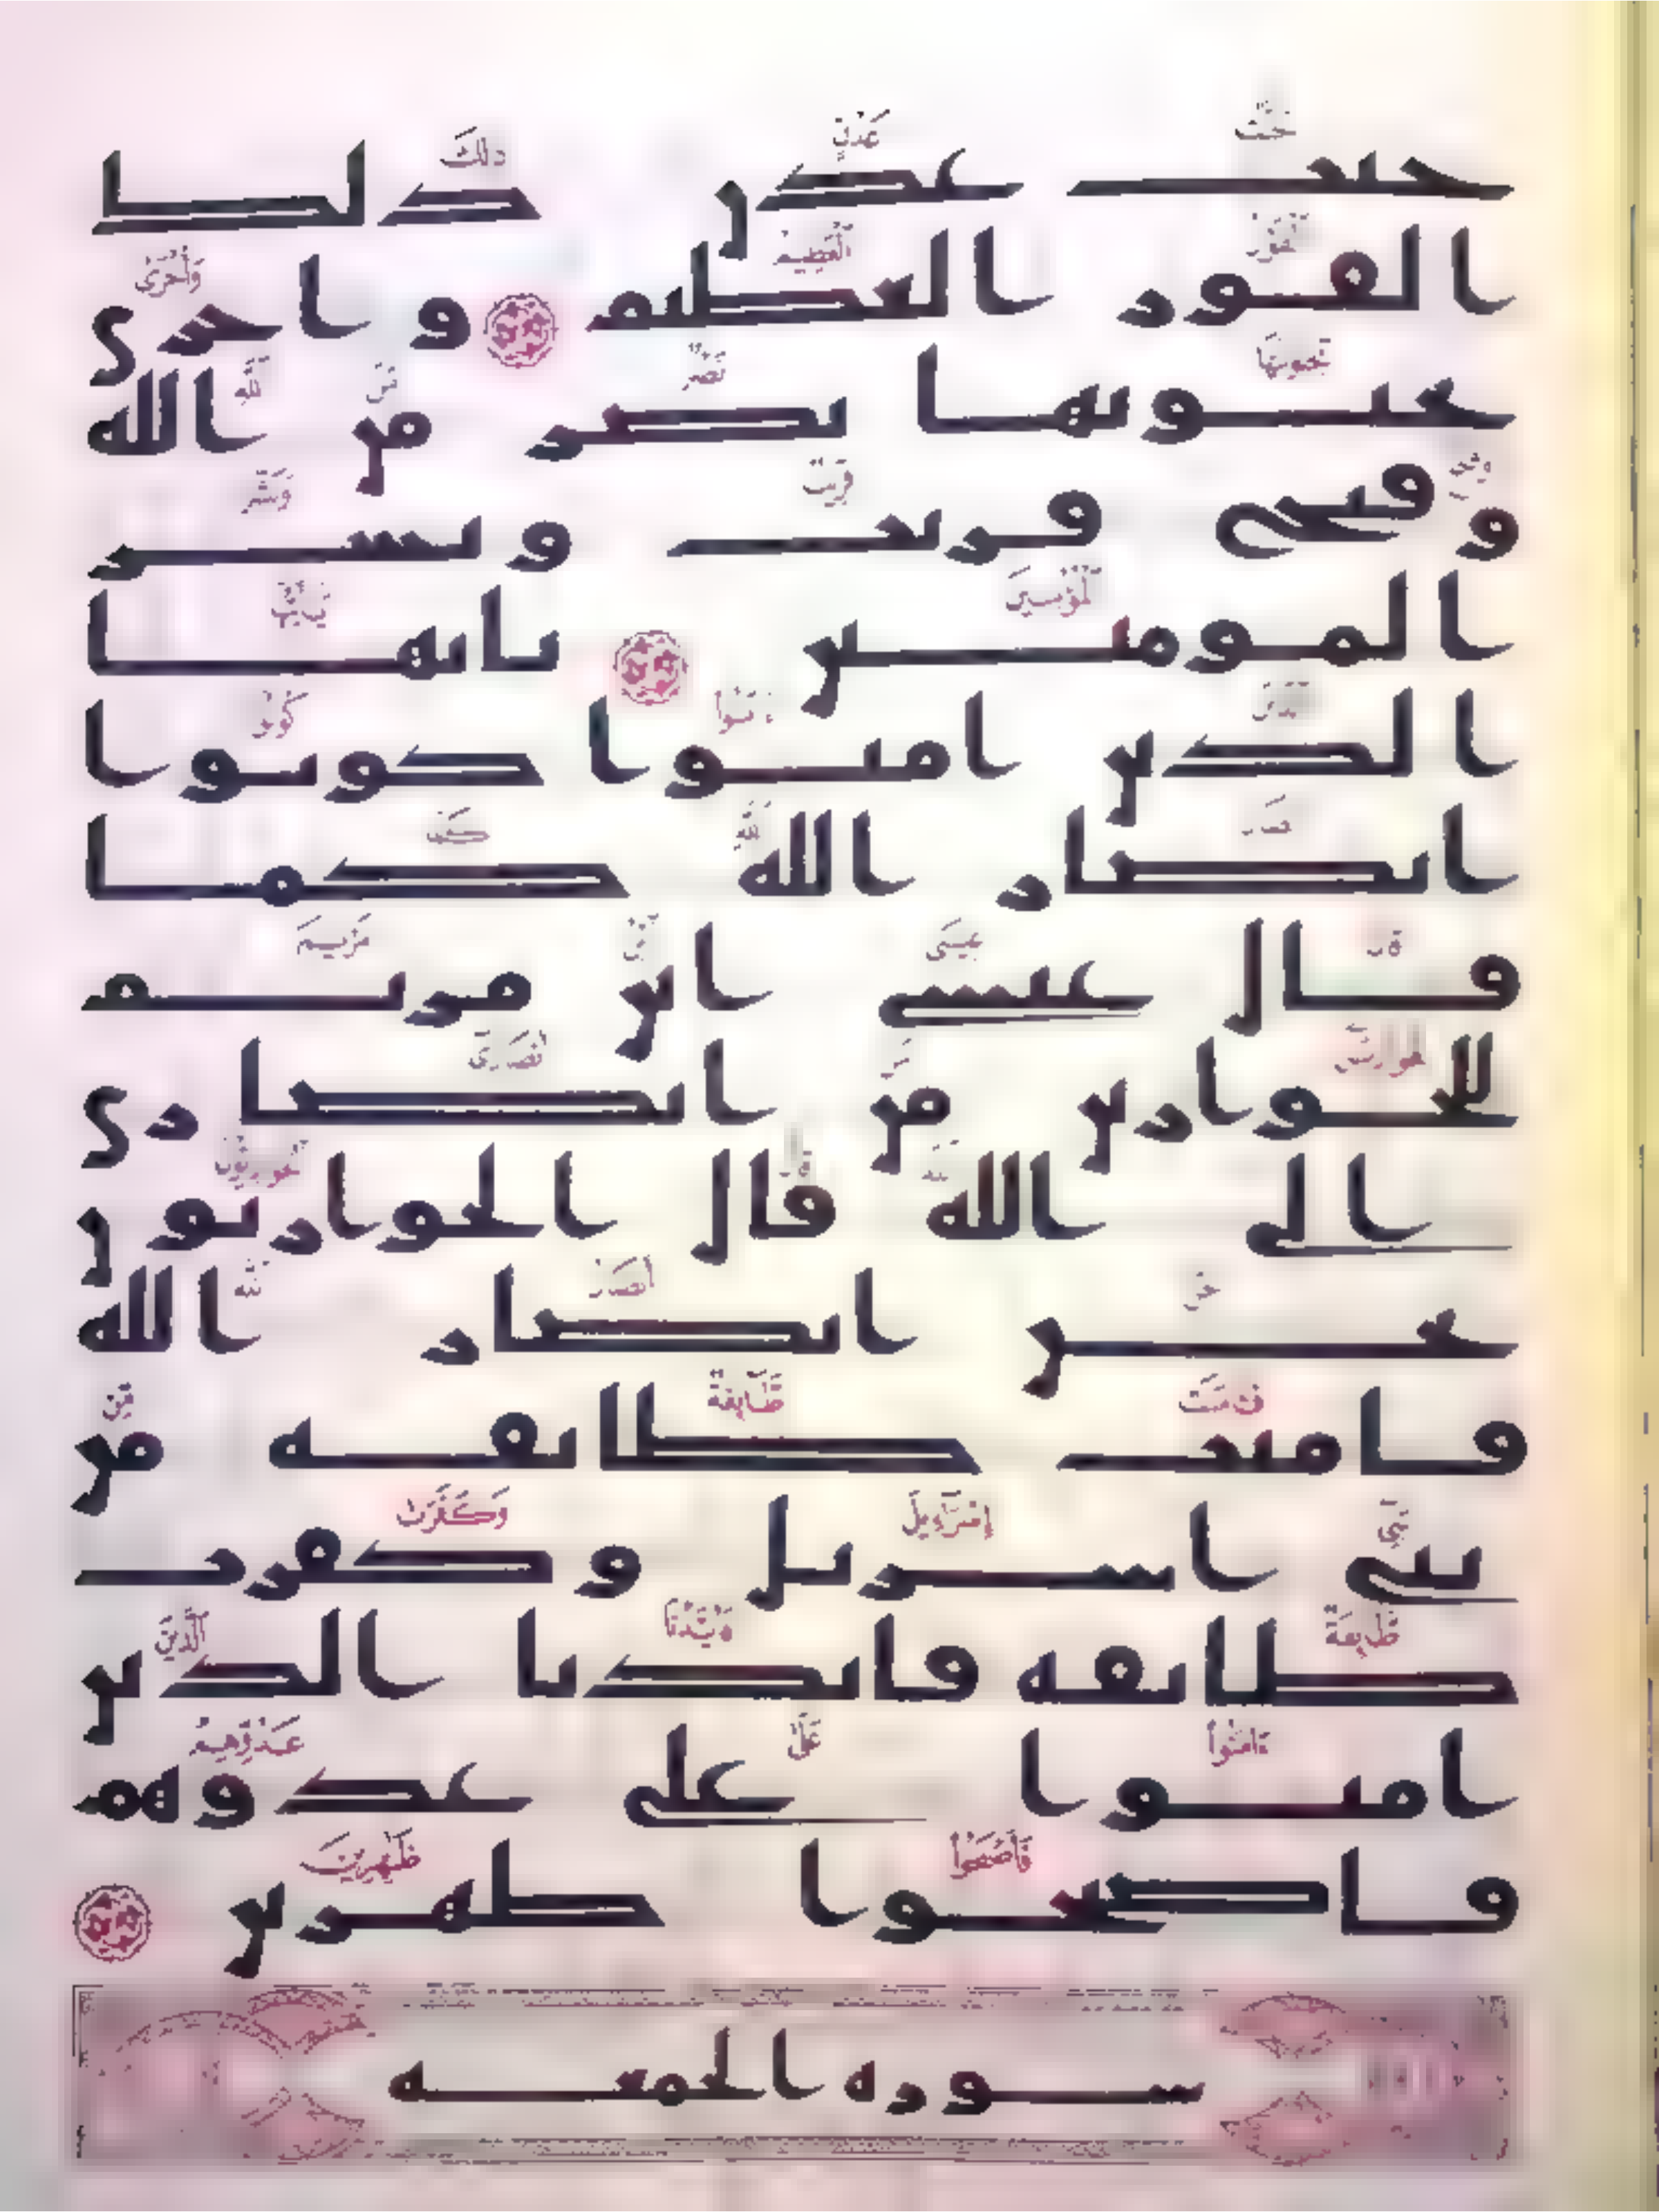 جنت عدن ذلك
الفوز العظيم واخرى
تحبونها نصر من الله
وفتح قريب وبشر
المومنين يايها
الذين امنوا كونوا
انصار الله كما
قال عيسى ابن مريم
للحوارين من انصاري
الى الله قال الحواريون
نحن انصار الله
فامنت طايفه من
بني اسريل وكفرت
طايفه فايدنا الذين
امنوا على عدوهم
فاصبحوا ظهرين
سوره الجمعه